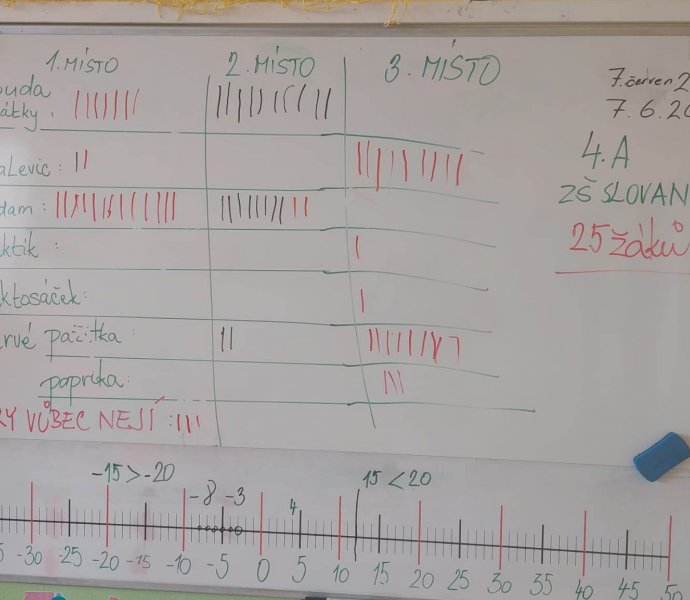 1. MÍSTO 2. MÍSTO 3. MÍSTO
ouda
átky :
aLevic :
dam :
ktik :
ktosáček :
rvé pažitka :
paprika :
RY VŮBEC NEJÍ : |||
7. červen 2
7. 6. 20
4. A
ZŠ SLOVAN
25 žáků
-15 > -20
15 < 20
-8 -3
4
5 -30 -25 -20 -15 -10 -5 0 5 10 15 20 25 30 35 40 45 50